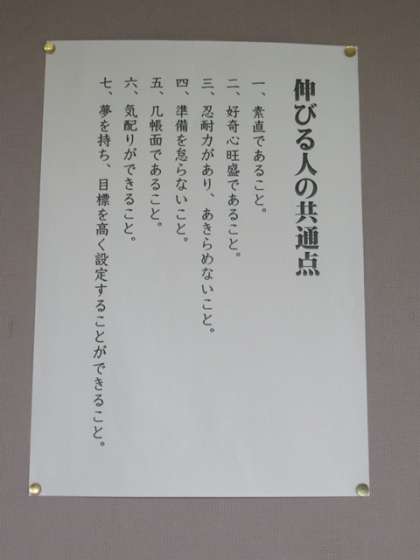 伸びる人の共通点
一、素直であること。
二、好奇心旺盛であること。
三、忍耐力があり、あきらめないこと。
四、準備を怠らないこと。
五、几帳面であること。
六、気配りができること。
七、夢を持ち、目標を高く設定することができること。